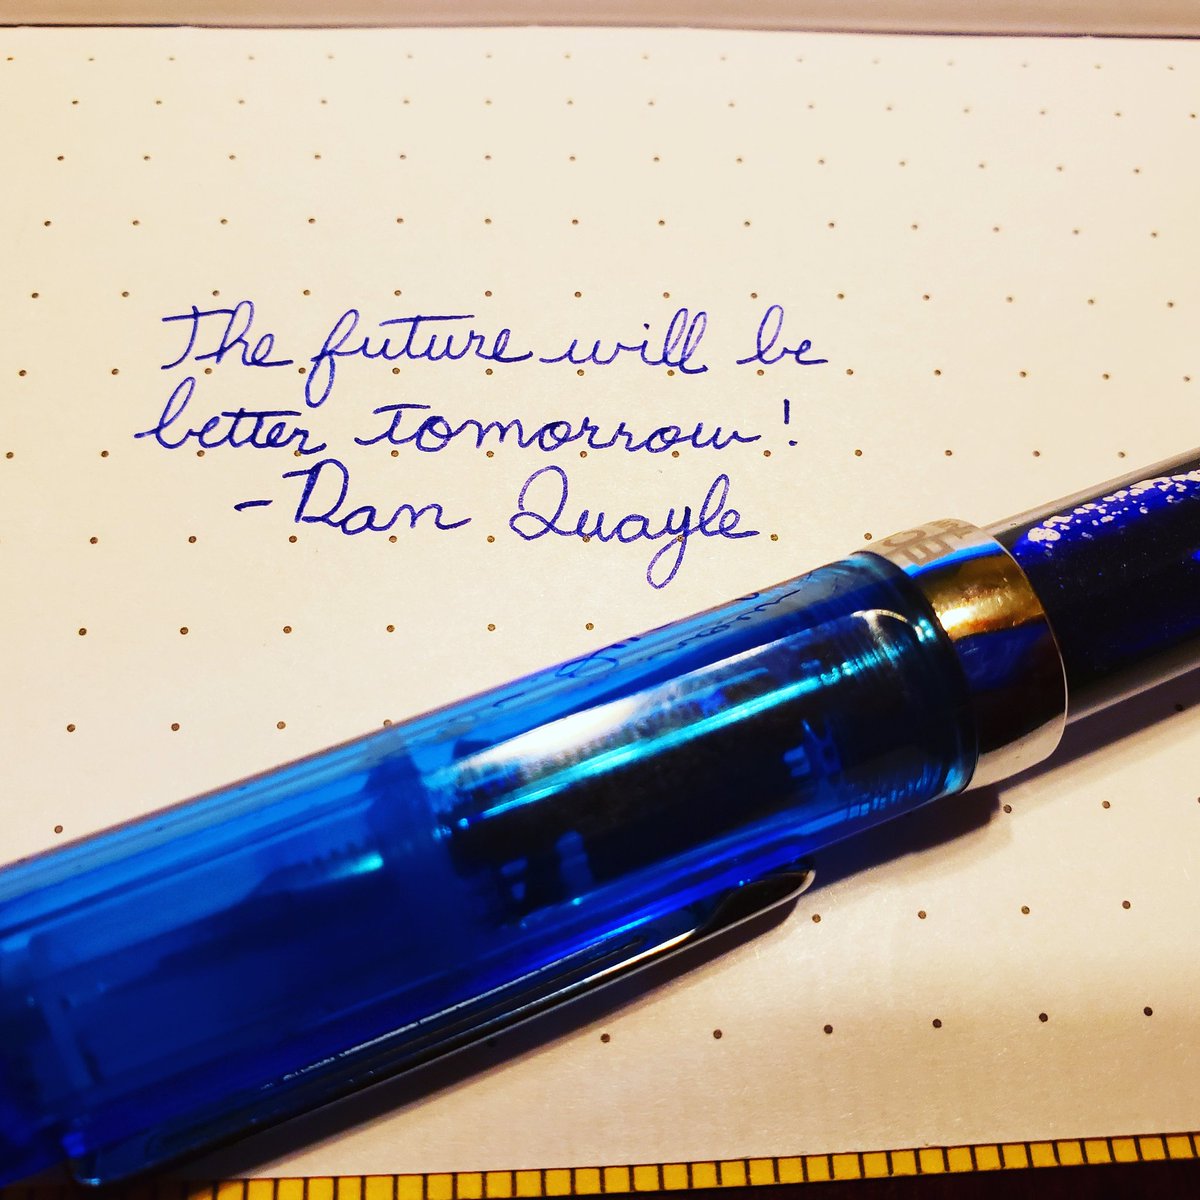 The future will be
better tomorrow!
-Dan Quayle